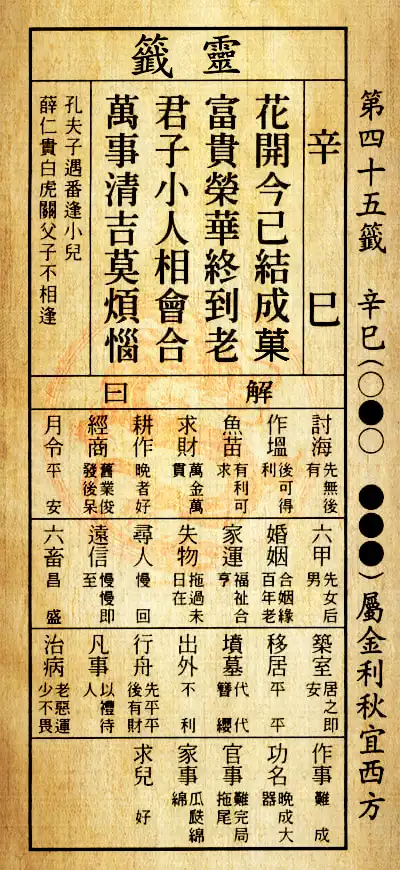 第四十五籤 辛巳(○●○ ●●●)屬金利秋宜西方
靈籤
辛巳
花開今已結成菓
富貴榮華終到老
君子小人相會合
萬事清吉莫煩惱
孔夫子遇番逢小兒
薛仁貴白虎關父子不相逢
解曰
討海 先無後有
作塭 後可得利
魚苗 有利可求
求財 萬金萬貫
耕作 晚者好
經商 舊業俊發後呆
月令 平安
六甲 先女后男
婚姻 合姻緣百年老
家運 福祉合亨
失物 拖過未日在
尋人 慢回
遠信 慢慢即至
六畜 昌盛
築室 居之即安
移居 平平
墳墓 代代簪纓
出外 不利
行舟 先平平後有財
凡事 以禮待人
治病 老惡運少不畏
作事 難成
功名 晚成大器
官事 難完局拖尾
家事 瓜瓞綿綿
求兒 好